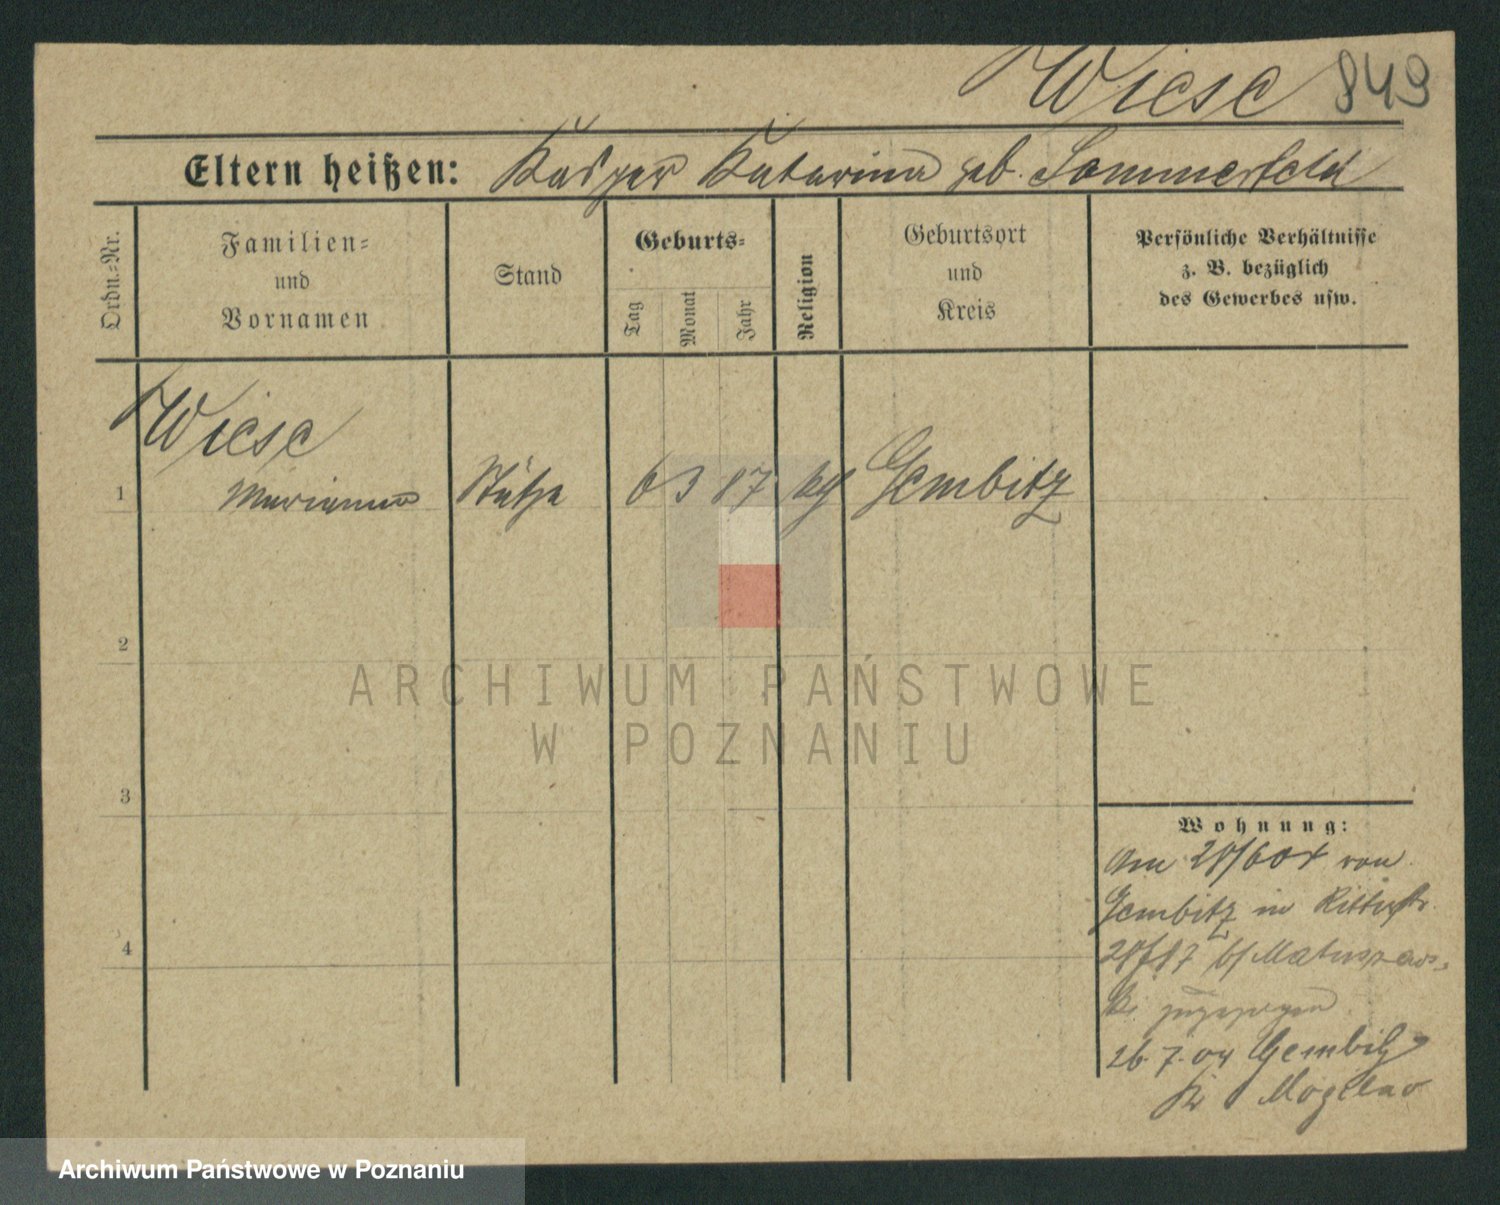 Wiese 849
Eltern heißen: Kasper Katarina geb. Sommerfeld
Ordn.=Nr.
Familien=
und
Vornamen
Stand
Geburts=
Tag
Monat
Jahr
Religion
Geburtsort
und
Kreis
Persönliche Verhältnisse
z. B. bezüglich
des Gewerbes usw.
Wiese
1 Marianna Stütze 6 3 87 kg Gembitz
2
3
4
ARCHIWUM PAŃSTWOWE
W POZNANIU
Wohnung:
Am 28/6 04 von
Gembitz in Ritterstr.
b/ Matuszews=
ki zugezogen
26.7.04 Gembitz
Kr Mogilno
Archiwum Państwowe w Poznaniu